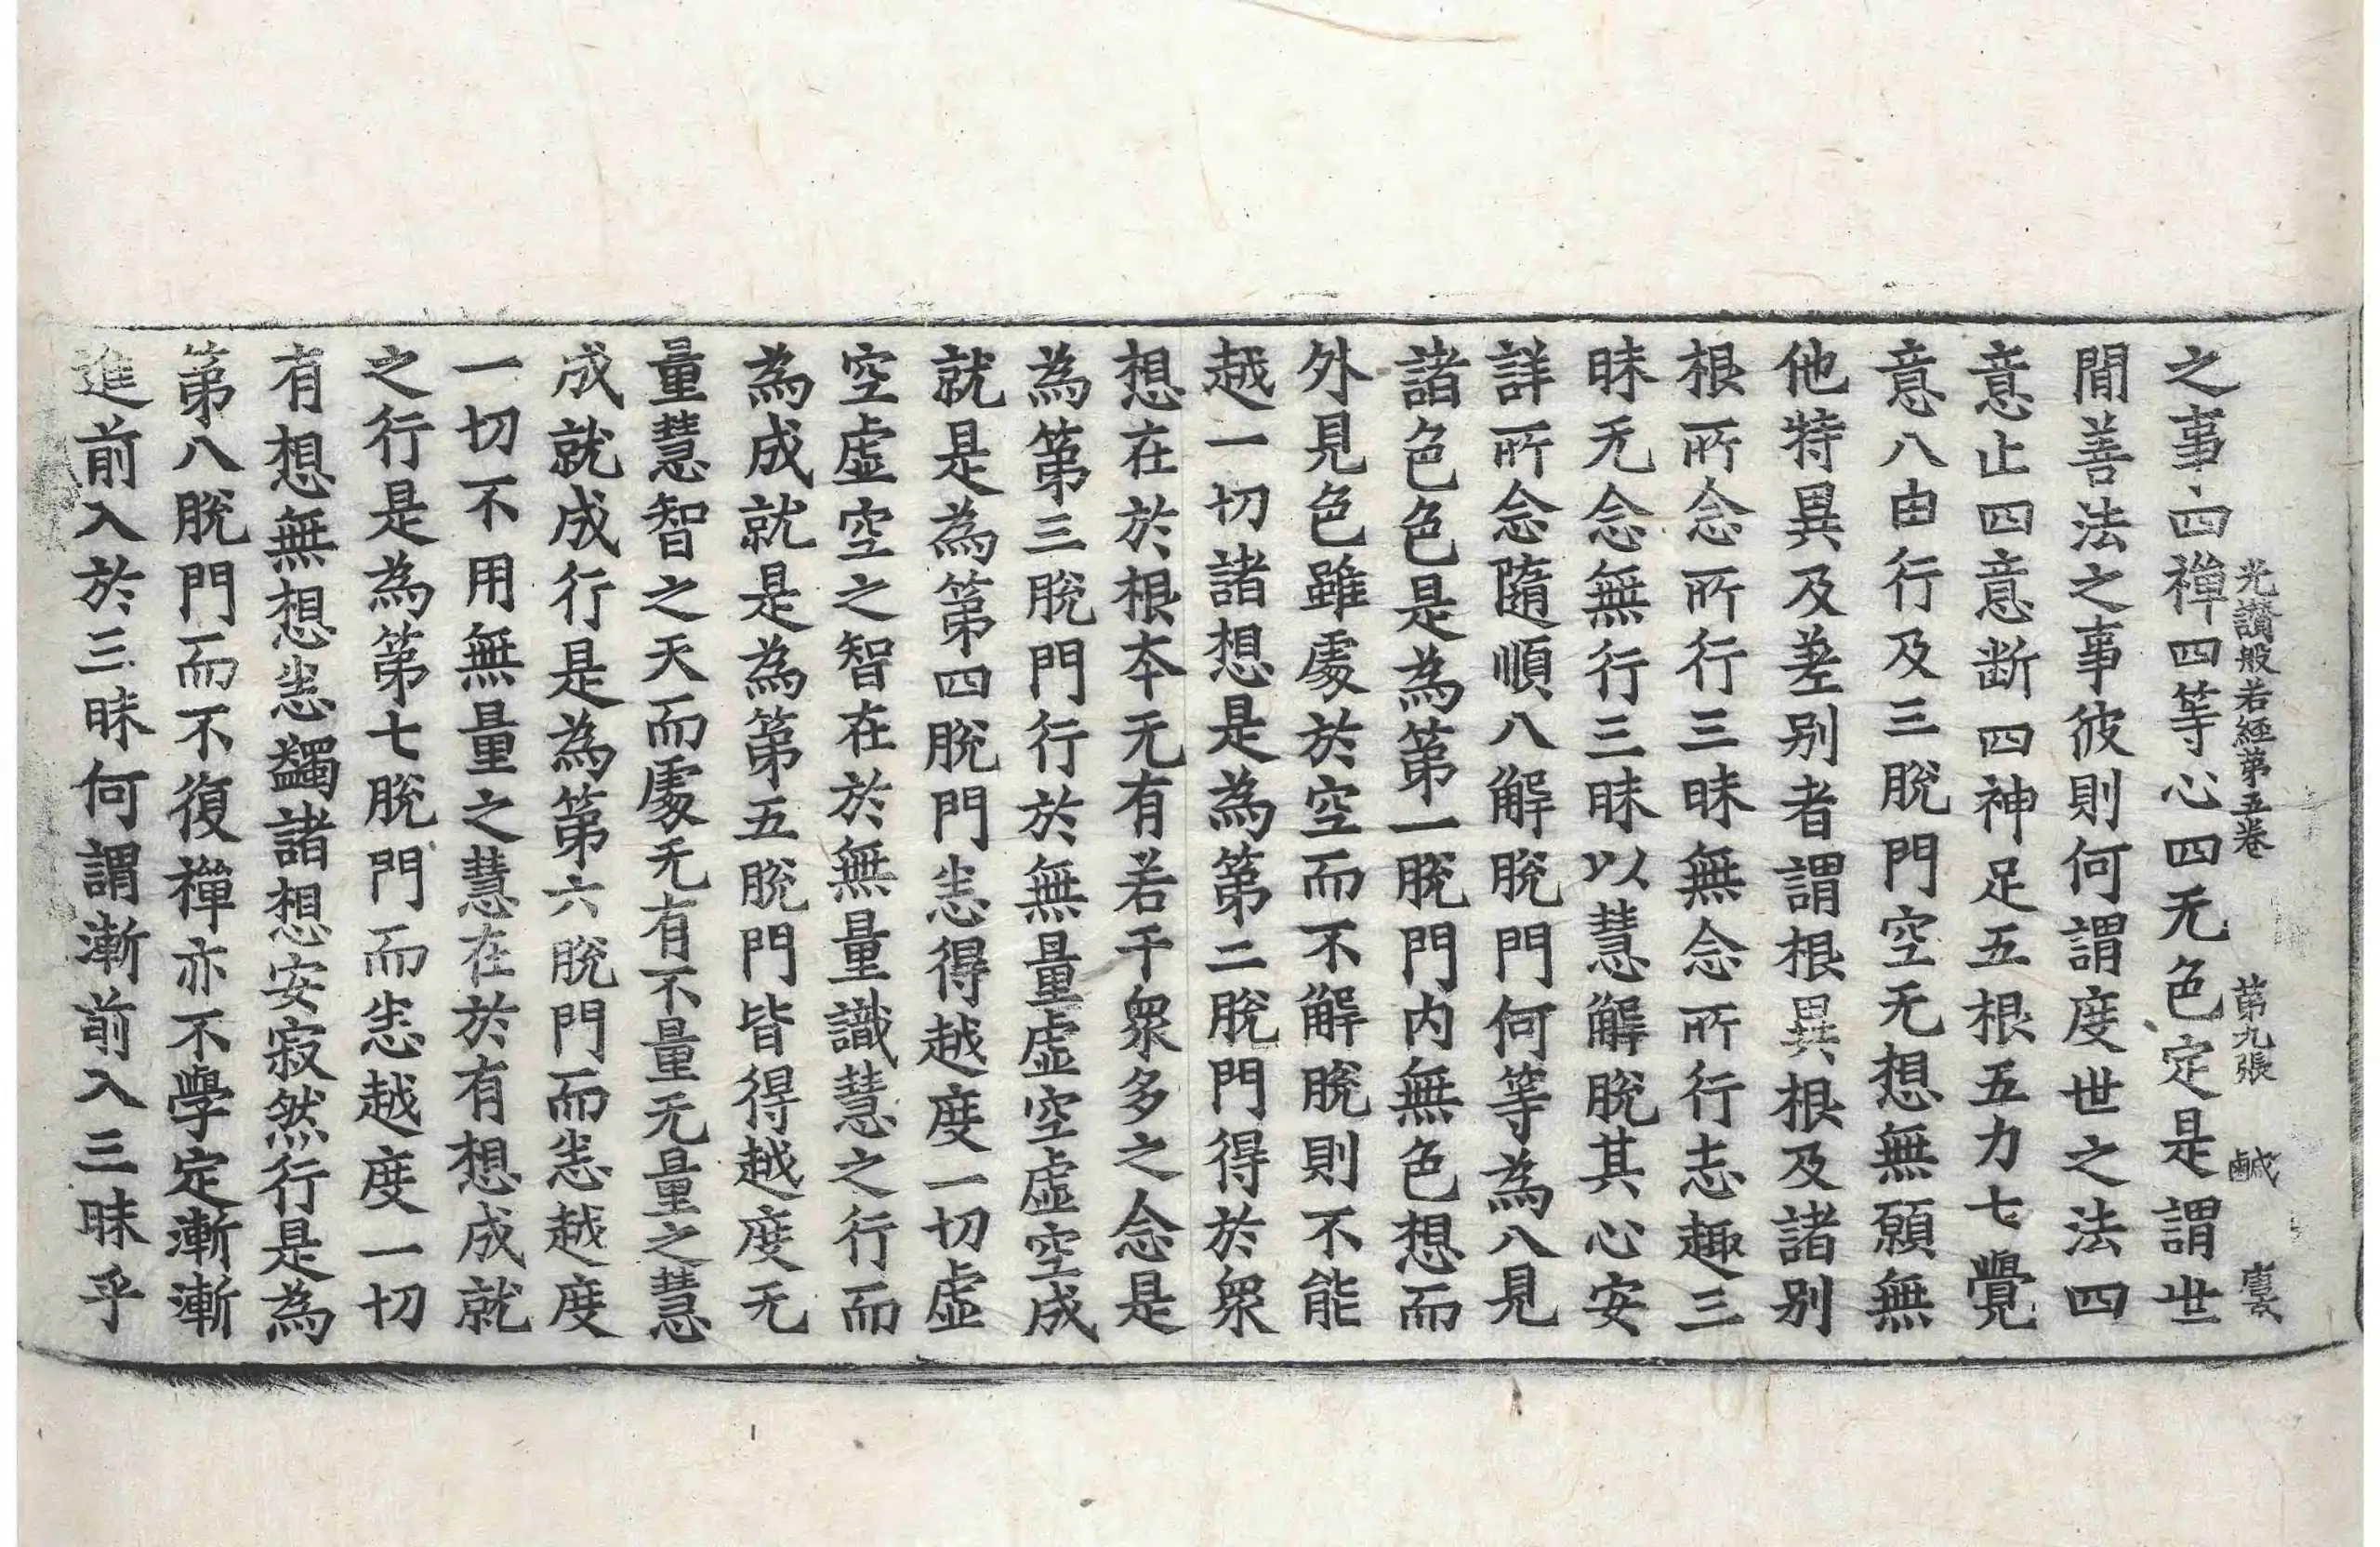 光讃般若經第五卷 第九張 鹹
之事四禪四等心四无色定是謂世
閒善法之事彼則何謂度世之法四
意止四意断四神足五根五力七覺
意八由行及三脫門空无想無願無
他特異及差别者謂根異根及諸别
根所念所行三昧無念所行志趣三
昧无念無行三昧以慧解脫其心安
詳所念隨順八解脫門何等為八見
諸色色是為第一脫門内無色想而
外見色雖處於空而不解脫則不能
越一切諸想是為第二脫門得於衆
想在於根本无有若干衆多之念是
為第三脫門行於無量虛空虛空成
就是為第四脫門恙得越度一切虛
空虛空之智在於無量識慧之行而
為成就是為第五脫門皆得越度无
量慧智之天而處无有不量无量之慧
成就成行是為第六脫門而恙越度
一切不用無量之慧在於有想成就
之行是為第七脫門而恙越度一切
有想無想恙蠲諸想安寂然行是為
第八脫門而不復禪亦不學定漸漸
進前入於三昧何謂漸前入三昧乎